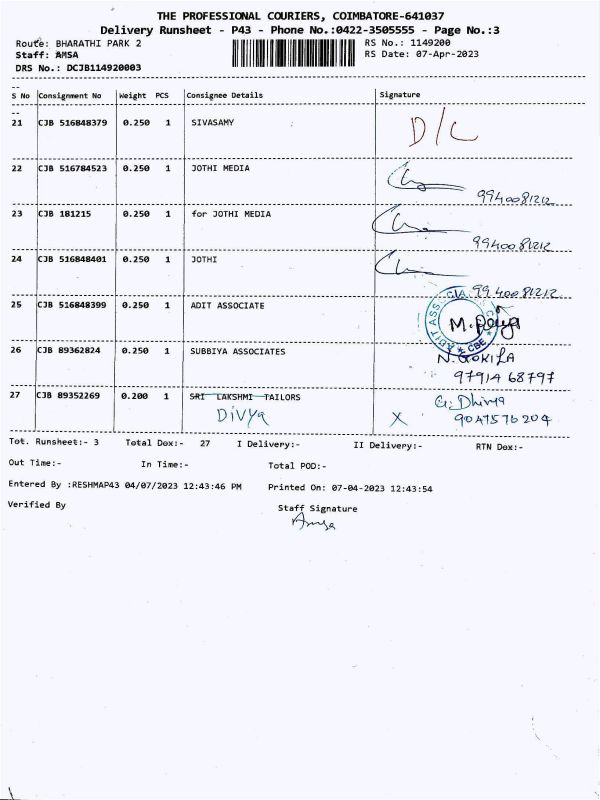 THE PROFESSIONAL COURIERS, COIMBATORE-641037
Delivery Runsheet - P43 - Phone No.:0422-3505555 - Page No.:3
Route: BHARATHI PARK 2 RS No.: 1149200
Staff: AMSA RS Date: 07-Apr-2023
DRS No.: DCJB114920003
S No Consignment No Weight PCS Consignee Details Signature
21 CJB 516848379 0.250 1 SIVASAMY D/L
22 CJB 516784523 0.250 1 JOTHI MEDIA
9940081212
23 CJB 181215 0.250 1 for JOTHI MEDIA
9940081212
24 CJB 516848401 0.250 1 JOTHI
9940081212
25 CJB 516848399 0.250 1 ADIT ASSOCIATE
ADIT ASSOCIA CBE
26 CJB 89362824 0.250 1 SUBBIYA ASSOCIATES N. GOKILA
9791468797
27 CJB 89352269 0.200 1 SRI LAKSHMI TAILORS G. Dhivya
DiVya X 9047576204
Tot. Runsheet:- 3 Total Dox:- 27 I Delivery:- II Delivery:- RTN Dox:-
Out Time:- In Time:- Total POD:-
Entered By :RESHMAP43 04/07/2023 12:43:46 PM Printed On: 07-04-2023 12:43:54
Verified By Staff Signature
Amsa